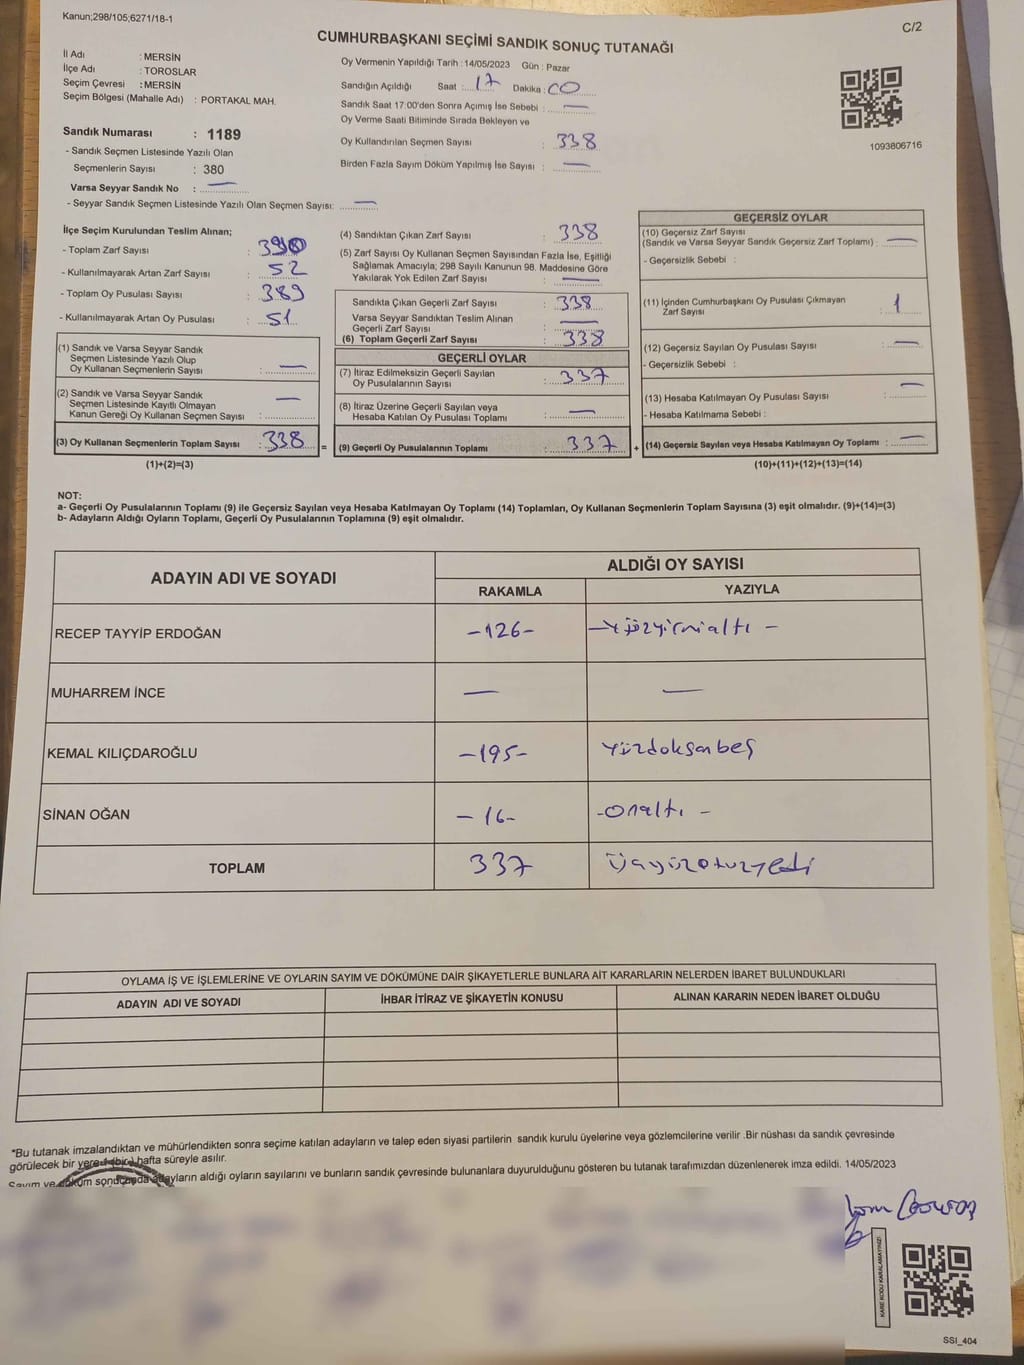 Kanun;298/105;6271/18-1
C/2
CUMHURBAŞKANI SEÇİMİ SANDIK SONUÇ TUTANAĞI
İl Adı : MERSİN
İlçe Adı : TOROSLAR
Seçim Çevresi : MERSİN
Seçim Bölgesi (Mahalle Adı) : PORTAKAL MAH.
Sandık Numarası : 1189
- Sandık Seçmen Listesinde Yazılı Olan
Seçmenlerin Sayısı : 380
Varsa Seyyar Sandık No : —
- Seyyar Sandık Seçmen Listesinde Yazılı Olan Seçmen Sayısı: —
Oy Vermenin Yapıldığı Tarih :14/05/2023 Gün : Pazar
Sandığın Açıldığı Saat : 17 Dakika : 00
Sandık Saat 17:00'den Sonra Açımış İse Sebebi : —
Oy Verme Saati Bitiminde Sırada Bekleyen ve
Oy Kullandırılan Seçmen Sayısı : 338
Birden Fazla Sayım Döküm Yapılmış İse Sayısı : —
1093806716
İlçe Seçim Kurulundan Teslim Alınan;
- Toplam Zarf Sayısı :
- Kullanılmayarak Artan Zarf Sayısı : 52
- Toplam Oy Pusulası Sayısı : 389
- Kullanılmayarak Artan Oy Pusulası : 51
(1) Sandık ve Varsa Seyyar Sandık
Seçmen Listesinde Yazılı Olup
Oy Kullanan Seçmenlerin Sayısı : —
(2) Sandık ve Varsa Seyyar Sandık
Seçmen Listesinde Kayıtlı Olmayan
Kanun Gereği Oy Kullanan Seçmen Sayısı : —
(3) Oy Kullanan Seçmenlerin Toplam Sayısı : 338 =
(1)+(2)=(3)
(4) Sandıktan Çıkan Zarf Sayısı : 338
(5) Zarf Sayısı Oy Kullanan Seçmen Sayısından Fazla İse, Eşitliği
Sağlamak Amacıyla; 298 Sayılı Kanunun 98. Maddesine Göre
Yakılarak Yok Edilen Zarf Sayısı : —
Sandıkta Çıkan Geçerli Zarf Sayısı : 338
Varsa Seyyar Sandıktan Teslim Alınan
Geçerli Zarf Sayısı : —
(6) Toplam Geçerli Zarf Sayısı : 338
GEÇERLİ OYLAR
(7) İtiraz Edilmeksizin Geçerli Sayılan
Oy Pusulalarının Sayısı : 337
(8) İtiraz Üzerine Geçerli Sayılan veya
Hesaba Katılan Oy Pusulası Toplamı : —
(9) Geçerli Oy Pusulalarının Toplamı : 337 +
GEÇERSİZ OYLAR
(10) Geçersiz Zarf Sayısı
(Sandık ve Varsa Seyyar Sandık Geçersiz Zarf Toplamı) : —
- Geçersizlik Sebebi :
(11) İçinden Cumhurbaşkanı Oy Pusulası Çıkmayan
Zarf Sayısı : 1
(12) Geçersiz Sayılan Oy Pusulası Sayısı : —
- Geçersizlik Sebebi :
(13) Hesaba Katılmayan Oy Pusulası Sayısı : —
- Hesaba Katılmama Sebebi :
(14) Geçersiz Sayılan veya Hesaba Katılmayan Oy Toplamı : —
(10)+(11)+(12)+(13)=(14)
NOT:
a- Geçerli Oy Pusulalarının Toplamı (9) ile Geçersiz Sayılan veya Hesaba Katılmayan Oy Toplamı (14) Toplamları, Oy Kullanan Seçmenlerin Toplam Sayısına (3) eşit olmalıdır. (9)+(14)=(3)
b- Adayların Aldığı Oyların Toplamı, Geçerli Oy Pusulalarının Toplamına (9) eşit olmalıdır.
ADAYIN ADI VE SOYADI ALDIĞI OY SAYISI
RAKAMLA YAZIYLA
RECEP TAYYİP ERDOĞAN -126- -yüzyirmialtı-
MUHARREM İNCE — —
KEMAL KILIÇDAROĞLU -195- Yüzdoksanbeş
SİNAN OĞAN -16- -onaltı-
TOPLAM 337 Üçyüzotuzyedi
OYLAMA İŞ VE İŞLEMLERİNE VE OYLARIN SAYIM VE DÖKÜMÜNE DAİR ŞİKAYETLERLE BUNLARA AİT KARARLARIN NELERDEN İBARET BULUNDUKLARI
ADAYIN ADI VE SOYADI İHBAR İTİRAZ VE ŞİKAYETİN KONUSU ALINAN KARARIN NEDEN İBARET OLDUĞU
*Bu tutanak imzalandıktan ve mühürlendikten sonra seçime katılan adayların ve talep eden siyasi partilerin sandık kurulu üyelerine veya gözlemcilerine verilir .Bir nüshası da sandık çevresinde
görülecek bir yere 1 (bir) hafta süreyle asılır.
Sayım ve döküm sonucunda adayların aldığı oyların sayılarını ve bunların sandık çevresinde bulunanlara duyurulduğunu gösteren bu tutanak tarafımızdan düzenlenerek imza edildi. 14/05/2023
KARE KODU KARALAMAYINIZ!
SSI_404